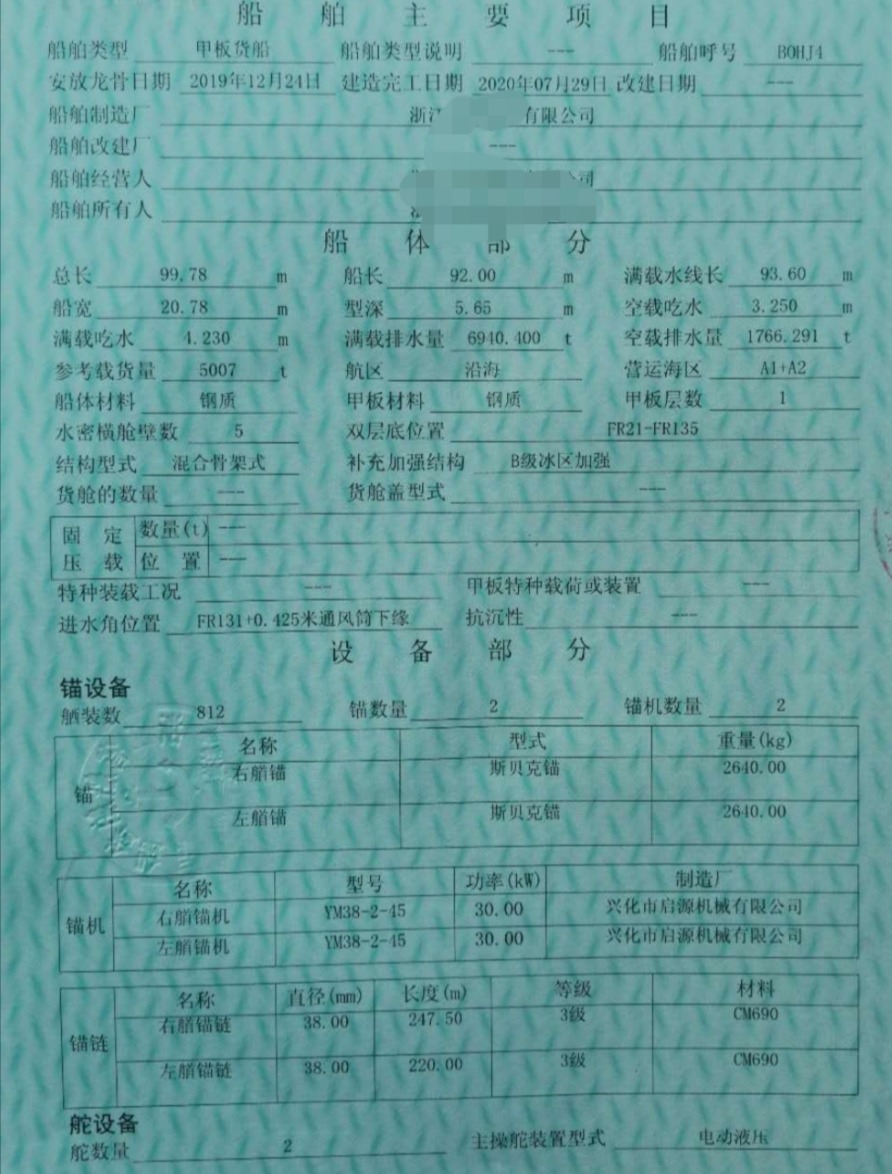 船舶主要项目
船舶类型 甲板货船 船舶类型说明 --- 船舶呼号 BOHJ4
安放龙骨日期 2019年12月24日 建造完工日期 2020年07月29日 改建日期 ---
船舶制造厂 浙江 有限公司
船舶改建厂 ---
船舶经营人 公司
船舶所有人
船体部分
总长 99.78 m 船长 92.00 m 满载水线长 93.60 m
船宽 20.78 m 型深 5.65 m 空载吃水 3.250 m
满载吃水 4.230 m 满载排水量 6940.400 t 空载排水量 1766.291 t
参考载货量 5007 t 航区 沿海 营运海区 A1+A2
船体材料 钢质 甲板材料 钢质 甲板层数 1
水密横舱壁数 5 双层底位置 FR21-FR135
结构型式 混合骨架式 补充加强结构 B级冰区加强
货舱的数量 --- 货舱盖型式 ---
固定 数量(t) ---
压载 位置 ---
特种装载工况 --- 甲板特种载荷或装置 ---
进水角位置 FR131+0.425米通风筒下缘 抗沉性 ---
设备部分
锚设备
舾装数 812 锚数量 2 锚机数量 2
名称 型式 重量(kg)
右艏锚 斯贝克锚 2640.00
锚
左艏锚 斯贝克锚 2640.00
名称 型号 功率(kW) 制造厂
右艏锚机 YM38-2-45 30.00 兴化市启源机械有限公司
锚机
左艏锚机 YM38-2-45 30.00 兴化市启源机械有限公司
名称 直径(mm) 长度(m) 等级 材料
右艏锚链 38.00 247.50 3级 CM690
锚链
左艏锚链 38.00 220.00 3级 CM690
舵设备
舵数量 2 主操舵装置型式 电动液压